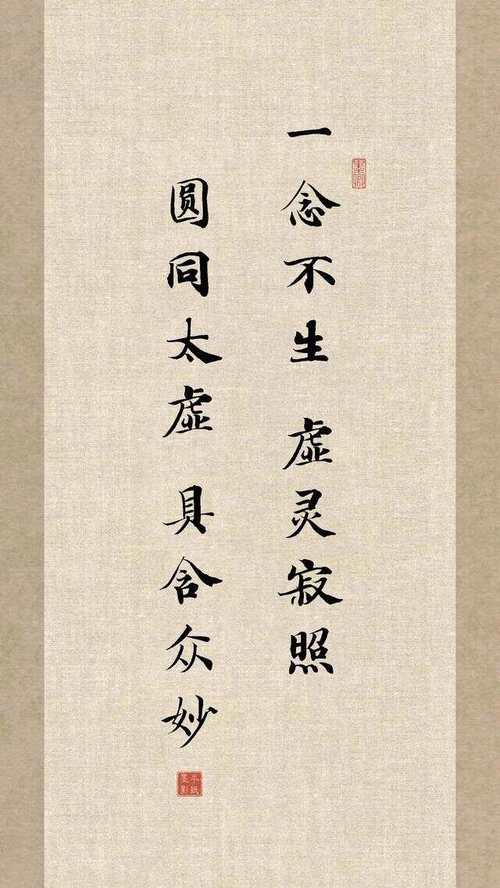 一念不生 虚灵寂照
圆同太虚 具含众妙